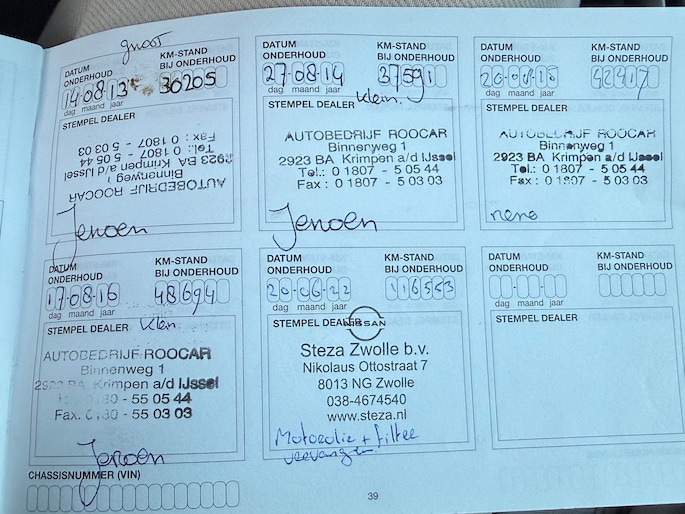 groot
DATUM ONDERHOUD
KM-STAND BIJ ONDERHOUD
14-08-13
30205
dag maand jaar
STEMPEL DEALER
AUTOBEDRIJF ROOCAR
Binnenweg 1
2923 BA Krimpen a/d IJssel
Tel.: 0 1807 - 5 05 44
Fax : 0 1807 - 5 03 03
Jeroen
DATUM ONDERHOUD
KM-STAND BIJ ONDERHOUD
27-08-14
37591
dag maand jaar
Klein.
STEMPEL DEALER
AUTOBEDRIJF ROOCAR
Binnenweg 1
2923 BA Krimpen a/d IJssel
Tel.: 0 1807 - 5 05 44
Fax : 0 1807 - 5 03 03
Jeroen
DATUM ONDERHOUD
KM-STAND BIJ ONDERHOUD
42417
dag maand jaar
STEMPEL DEALER
AUTOBEDRIJF ROOCAR
Binnenweg 1
2923 BA Krimpen a/d IJssel
Tel.: 0 1807 - 5 05 44
Fax : 0 1807 - 5 03 03
rene
DATUM ONDERHOUD
KM-STAND BIJ ONDERHOUD
17-08-16
48694
dag maand jaar
STEMPEL DEALER
Klein
AUTOBEDRIJF ROOCAR
Binnenweg 1
2923 BA Krimpen a/d IJssel
- 55 05 44
Fax. - 55 03 03
Jeroen
DATUM ONDERHOUD
KM-STAND BIJ ONDERHOUD
20-06-22
116553
dag maand jaar
STEMPEL DEALER
NISSAN
Steza Zwolle b.v.
Nikolaus Ottostraat 7
8013 NG Zwolle
038-4674540
www.steza.nl
Motorolie + filter
vervangen
DATUM ONDERHOUD
KM-STAND BIJ ONDERHOUD
dag maand jaar
STEMPEL DEALER
CHASSISNUMMER (VIN)
39